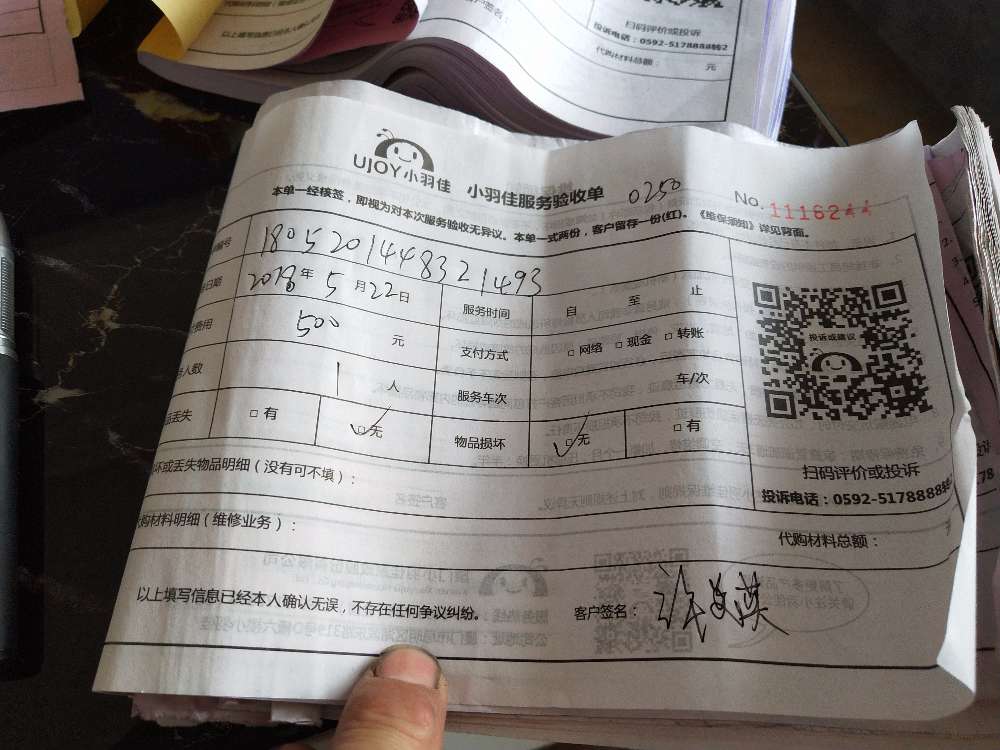 以上填写信息已经本人确认无
扫码评价或投诉
投诉电话：0592-5178888转2
代购材料总额： 元
UJOY小羽佳 小羽佳服务验收单 0250 No. 1116244
本单一经核签，即视为对本次服务验收无异议。本单一式两份，客户留存一份(红)。《维保须知》详见背面。
编号 180520144832 1493
日期 2018年5月22日 服务时间 自 至 止
费用 500 元 支付方式 □网络 □现金 □转账
人数 1 人 服务车次 车/次
品丢失 □有 □✓无 物品损坏 □✓无 □有
投诉或建议
扫码评价或投诉
投诉电话：0592-5178888转
坏或丢失物品明细（没有可不填）：
购材料明细（维修业务）： 代购材料总额：
以上填写信息已经本人确认无误，不存在任何争议纠纷。 客户签名：